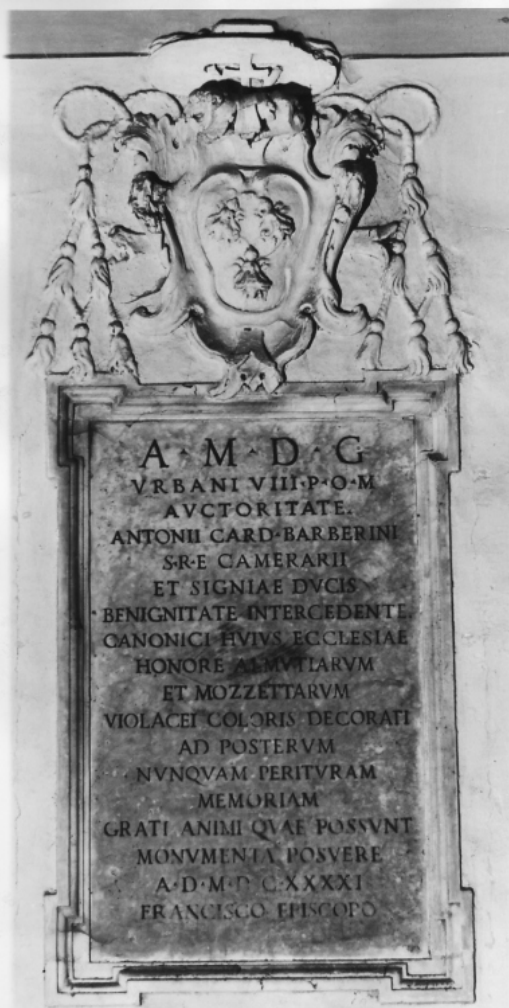 A·M·D·G
VRBANI VIII·P·O·M
AVCTORITATE.
ANTONII CARD·BARBERINI
S·R·E CAMERARII
ET SIGNIAE DVCIS
BENIGNITATE INTERCEDENTE.
CANONICI HVIVS ECCLESIAE
HONORE ALMVTIARVM
ET MOZZETTARVM
VIOLACEI COLORIS DECORATI
AD POSTERVM
NVNQVAM PERITVRAM
MEMORIAM
GRATI ANIMI QVAE POSSVNT
MONVMENTA POSVERE
A·D·M·D·C·XXXXI
FRANCISCO EPISCOPO